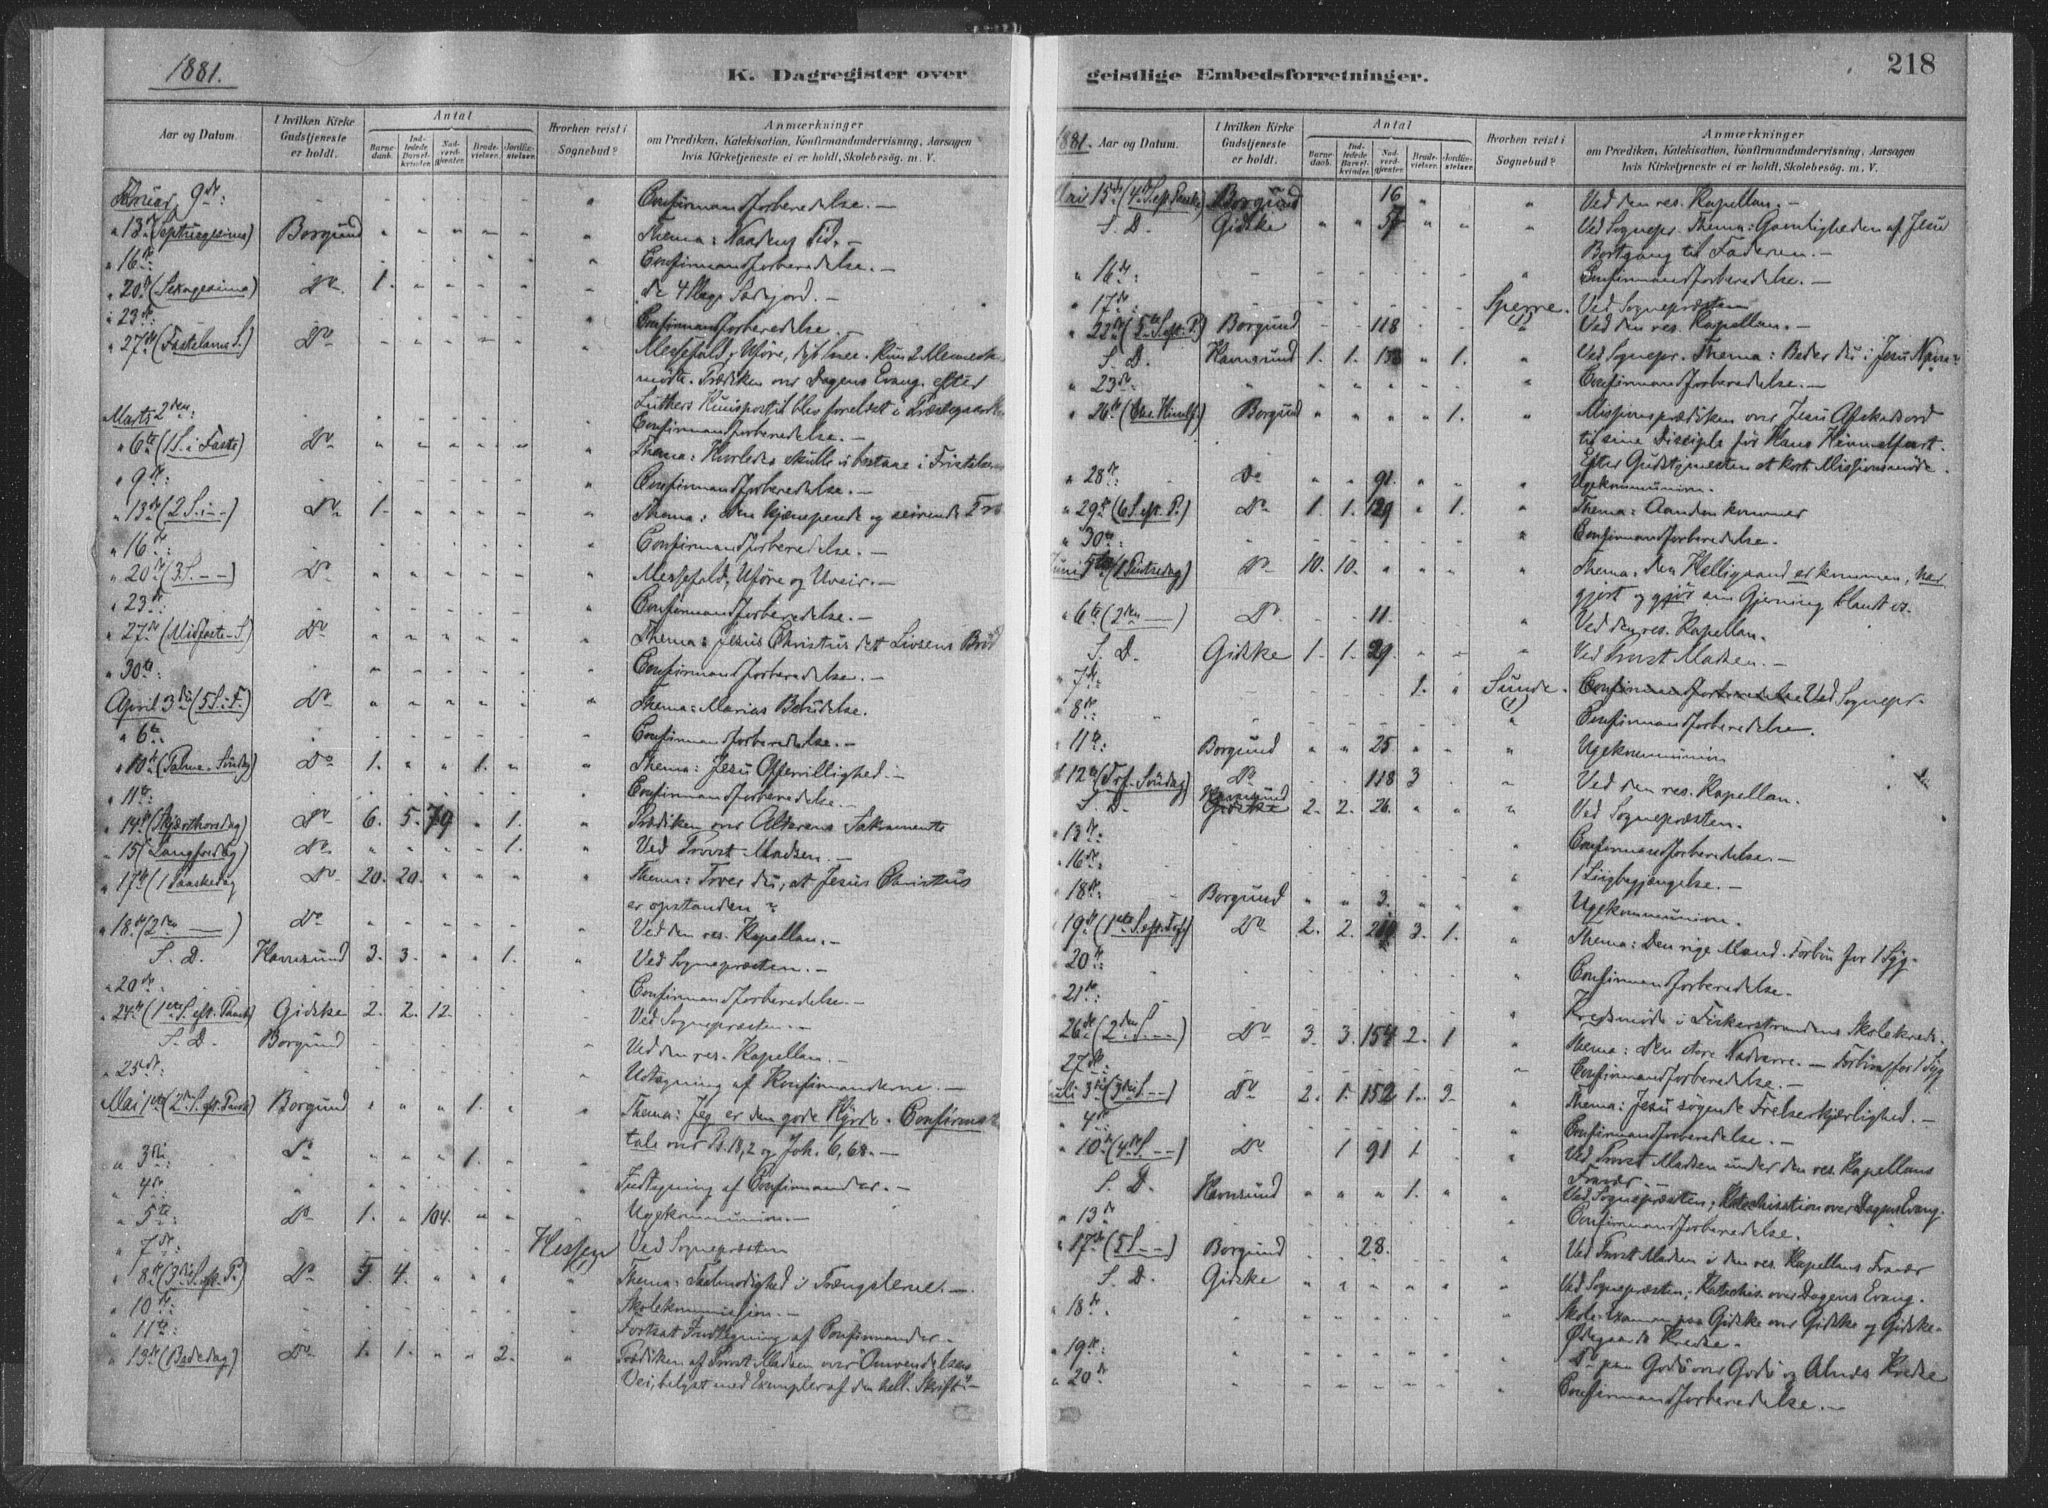 1881.
K. Dagregister over
Aar og Datum.
I hvilken Kirke Gudstjeneste er holdt.
Antal
Barnedaab.
Indledede Barselkvinder.
Nadverdgjæster.
Brudevielser.
Jordfæstelser.
Hvorhen reist i Sognebud?
Anmærkninger
om Prædiken, Katekisation, Konfirmandundervisning, Aarsagen
hvis Kirketjeneste ei er holdt, Skolebesög. m. V.
Februar 9de: " Confirmandforberedelse. —
" 13de (Septuagesima) Borgund " " " " " " Thema: Naadens Tid. —
" 16de: " Confirmandforberedelse. —
" 20de (Sexagesima) Do. 1. " " " " " De 4 Slags Sædejord. —
" 23de: " Confirmandforberedelse. —
" 27de (Fastelavns S.) Do " " " " " " Messefald, Uføre, dyb Snee. Kun 2 Mennesk
mødte. Prædiken over Dagens Evang. efter
Luthers Huuspostil blev forelæst i Præstegaard
Marts 2den: " Confirmandforberedelse. —
" 6te (1 S. i Faste) Do " " " " " " Thema: Hvorledes skulle vi bestaae i Fristelsen
" 9de: " Confirmandforberedelse. —
" 13de (2 S. i —) Do 1. " " " " " Thema: Den kjæmpende og seirende Tro
" 16de: " Confirmandforberedelse. —
" 20de (3 S. — —) Do " " " " " " Messefald, Uføre og Uveir. —
" 23de: " Confirmandforberedelse. —
" 27de (Midfaste-S) Do " " " " " " Thema: Jesus Christus det Livsens Brød
" 30te: " Confirmandforberedelse. —
April 3die (5 S. i F.) Do " " " " " " Thema: Marias Bebudelse.
" 6te: " Confirmandforberedelse. —
" 10de (Palme-Søndag) Do 1. " " 1. " " Thema: Jesu Offervillighed. —
" 11te: Confirmandforberedelse. —
" 14de (Skjærthorsdag) Do 6. 5. 79 " 1. " Prædiken over Alterens Sakramente
" 15 (Langfredag) Do " " " " 1. " Ved Provst Madsen. —
" 17de (1 Paaskedag Do 20. 20. " " " " Thema: Troer du, at Jesus Christus
er opstanden?
" 18de (2den —) Do " " " " " " Ved den res. Kapellan. —
S. D. Havnsund 3. 3. " " 1. " Ved Sognepræsten. —
" 20de Confirmandforberedelse. —
" 24de (1ste S. eft. Paaske) Gidske 2. 2. 12. Ved Sognepræsten. —
S. D. Borgund Ved den res. Kapellan. —
" 25de: " Udtagning af Konfirmanderne. —
Mai 1ste (2den S. eft. Paaske) Borgund " " " 1. " " Thema: Jeg er den gode Hyrde. Confirms-
tale over P. 18,2 og Joh. 6,68. —
" 3die: Do " " " 1. "
" 4de " Indtagning af Confirmander. —
" 5te: Do 1. " 104. " " Ugekommunion. —
" 7de: Hessen (1) Ved Sognepræsten
" 8de (3die S. eft. P.) Do 5. 4. " " " " Thema: Taalmodighed i Trængslerne. —
" 10de: " Skolekommission. —
" 11te: " Fortsat Indtagning af Confirmander —
" 13de (Bededag) Do 1. 1. " " 2. " Prædiken af Provst Madsen over "Omvendelsens
Vei, belyst med Exempler af den hell. Skrift" —
geistlige Embedsforretninger.
218
1881. Aar og Datum.
I hvilken Kirke Gudstjeneste er holdt.
Antal
Barnedaab.
Indledede Barselkvinder.
Nadverdgjæster.
Brudevielser.
Jordfæstelser.
Hvorhen reist i Sognebud?
Anmærkninger
om Prædiken, Katekisation, Konfirmandundervisning, Aarsagen
hvis Kirketjeneste ei er holdt, Skolebesög. m. V.
Mai 15de (4de S. eft. Paaske) Borgund 16 " " Ved den res. Kapellan. —
S. D. Gidske " " 57 " " " Ved Sognepr. Thema: Gavnligheden af Jesu
Bortgang til Faderen. —
" 16de: " Confirmandforberedelse. —
" 17de: Sperre. (1) Ved Sognepræsten
" 22de (5te S. eft. P.) Borgund 118 " Ved den res. Kapellan. —
S. D. Havnsund 1. 1. 158 " 1. " Ved Sognepr. Thema: Beder du i Jesu Navn?
" 23de: " Confirmandforberedelse. —
" 26te (Chr. Himlf.) Borgund " " " " 1. " Missionsprædiken over Jesu Afskedsord
til sine Disciple før Hans Himmelfart.
Efter Gudstjenesten et kort Missionsmøde.
" 28de: Do " " 91. " " " Ugekommunion.
" 29de (6 S. eft. P.) Do 1. 1. 129 " 1. " Thema: Aanden kommer
" 30te: " Confirmandforberedelse.
Juni 5te (1 Pintsedag) Do 10. 10. " " " " Thema: Den Helligaand er kommen, har
gjort og gjør sin Gjerning blandt os.
" 6te (2den —) Do 11. " Ved den res. Kapellan.
S. D. Gidske 1. 1. 29. " Ved Provst Madsen. —
" 7de: 1. " Sunde. (1) Confirmandforberedelse Ved Sognepr.
" 8de: " Confirmandforberedelse.
" 11te: Borgund " " 25. " " " Ugekommunion
" 12te (Tref. Søndag) Do 118 3 " Ved den res. Kapellan.
S. D. Havnsund Gidske 2. 2. 26. " " " Ved Sognepræsten.
" 13de: Confirmandforberedelse. —
" 16de: " 1 Liigbegjængelse. —
" 18de: Borgund " " 3. " " " Ugekommunion.
" 19de (1ste S. eft. Tref.) Do 2. 2. 3. 1. " Thema: Den rige Mand. Forbøn for 1 Syg.
" 20de: " Confirmandforberedelse.
" 21de: " Kredsmøde i Fiskerstrandens Skolekreds.
" 26de (2den S. — —) Do 3. 3. 154 2. 1 " Thema: Den store Nadverre. — Forbøn for 1 Syg
27de: " Confirmandforberedelse. —
Juli 3die (3die S. — —) Do 2. 1. 152 1. 3. " Thema: Jesu søgende Frelserkjærlighed. —
" 4de: " Confirmandforberedelse. —
" 10de (4de S. — —) Do 1 91 1 " Ved Provst Madsen under den res. Kapellans
Fravær. —
S. D. Havnsund " " " 1. " " Ved Sognepræsten; Katechisation over Dagens Evang.
" 13de Confirmandforberedelse.
" 17de (5 S. — —) Borgund 28. " Ved Provst Madsen i den res. Kapellans Fravær
S. D. Gidske " " " " " " Ved Sognepræsten; Katechis. over Dagens Evang.
" 18de " Skole-Examen paa Gidske over Gidske og Gidske-
Ødegaards Kredse.
" 19de: " Do paa Godø over Godø og Alnæs Kredse
" 20de " Confirmandforberedelse. —